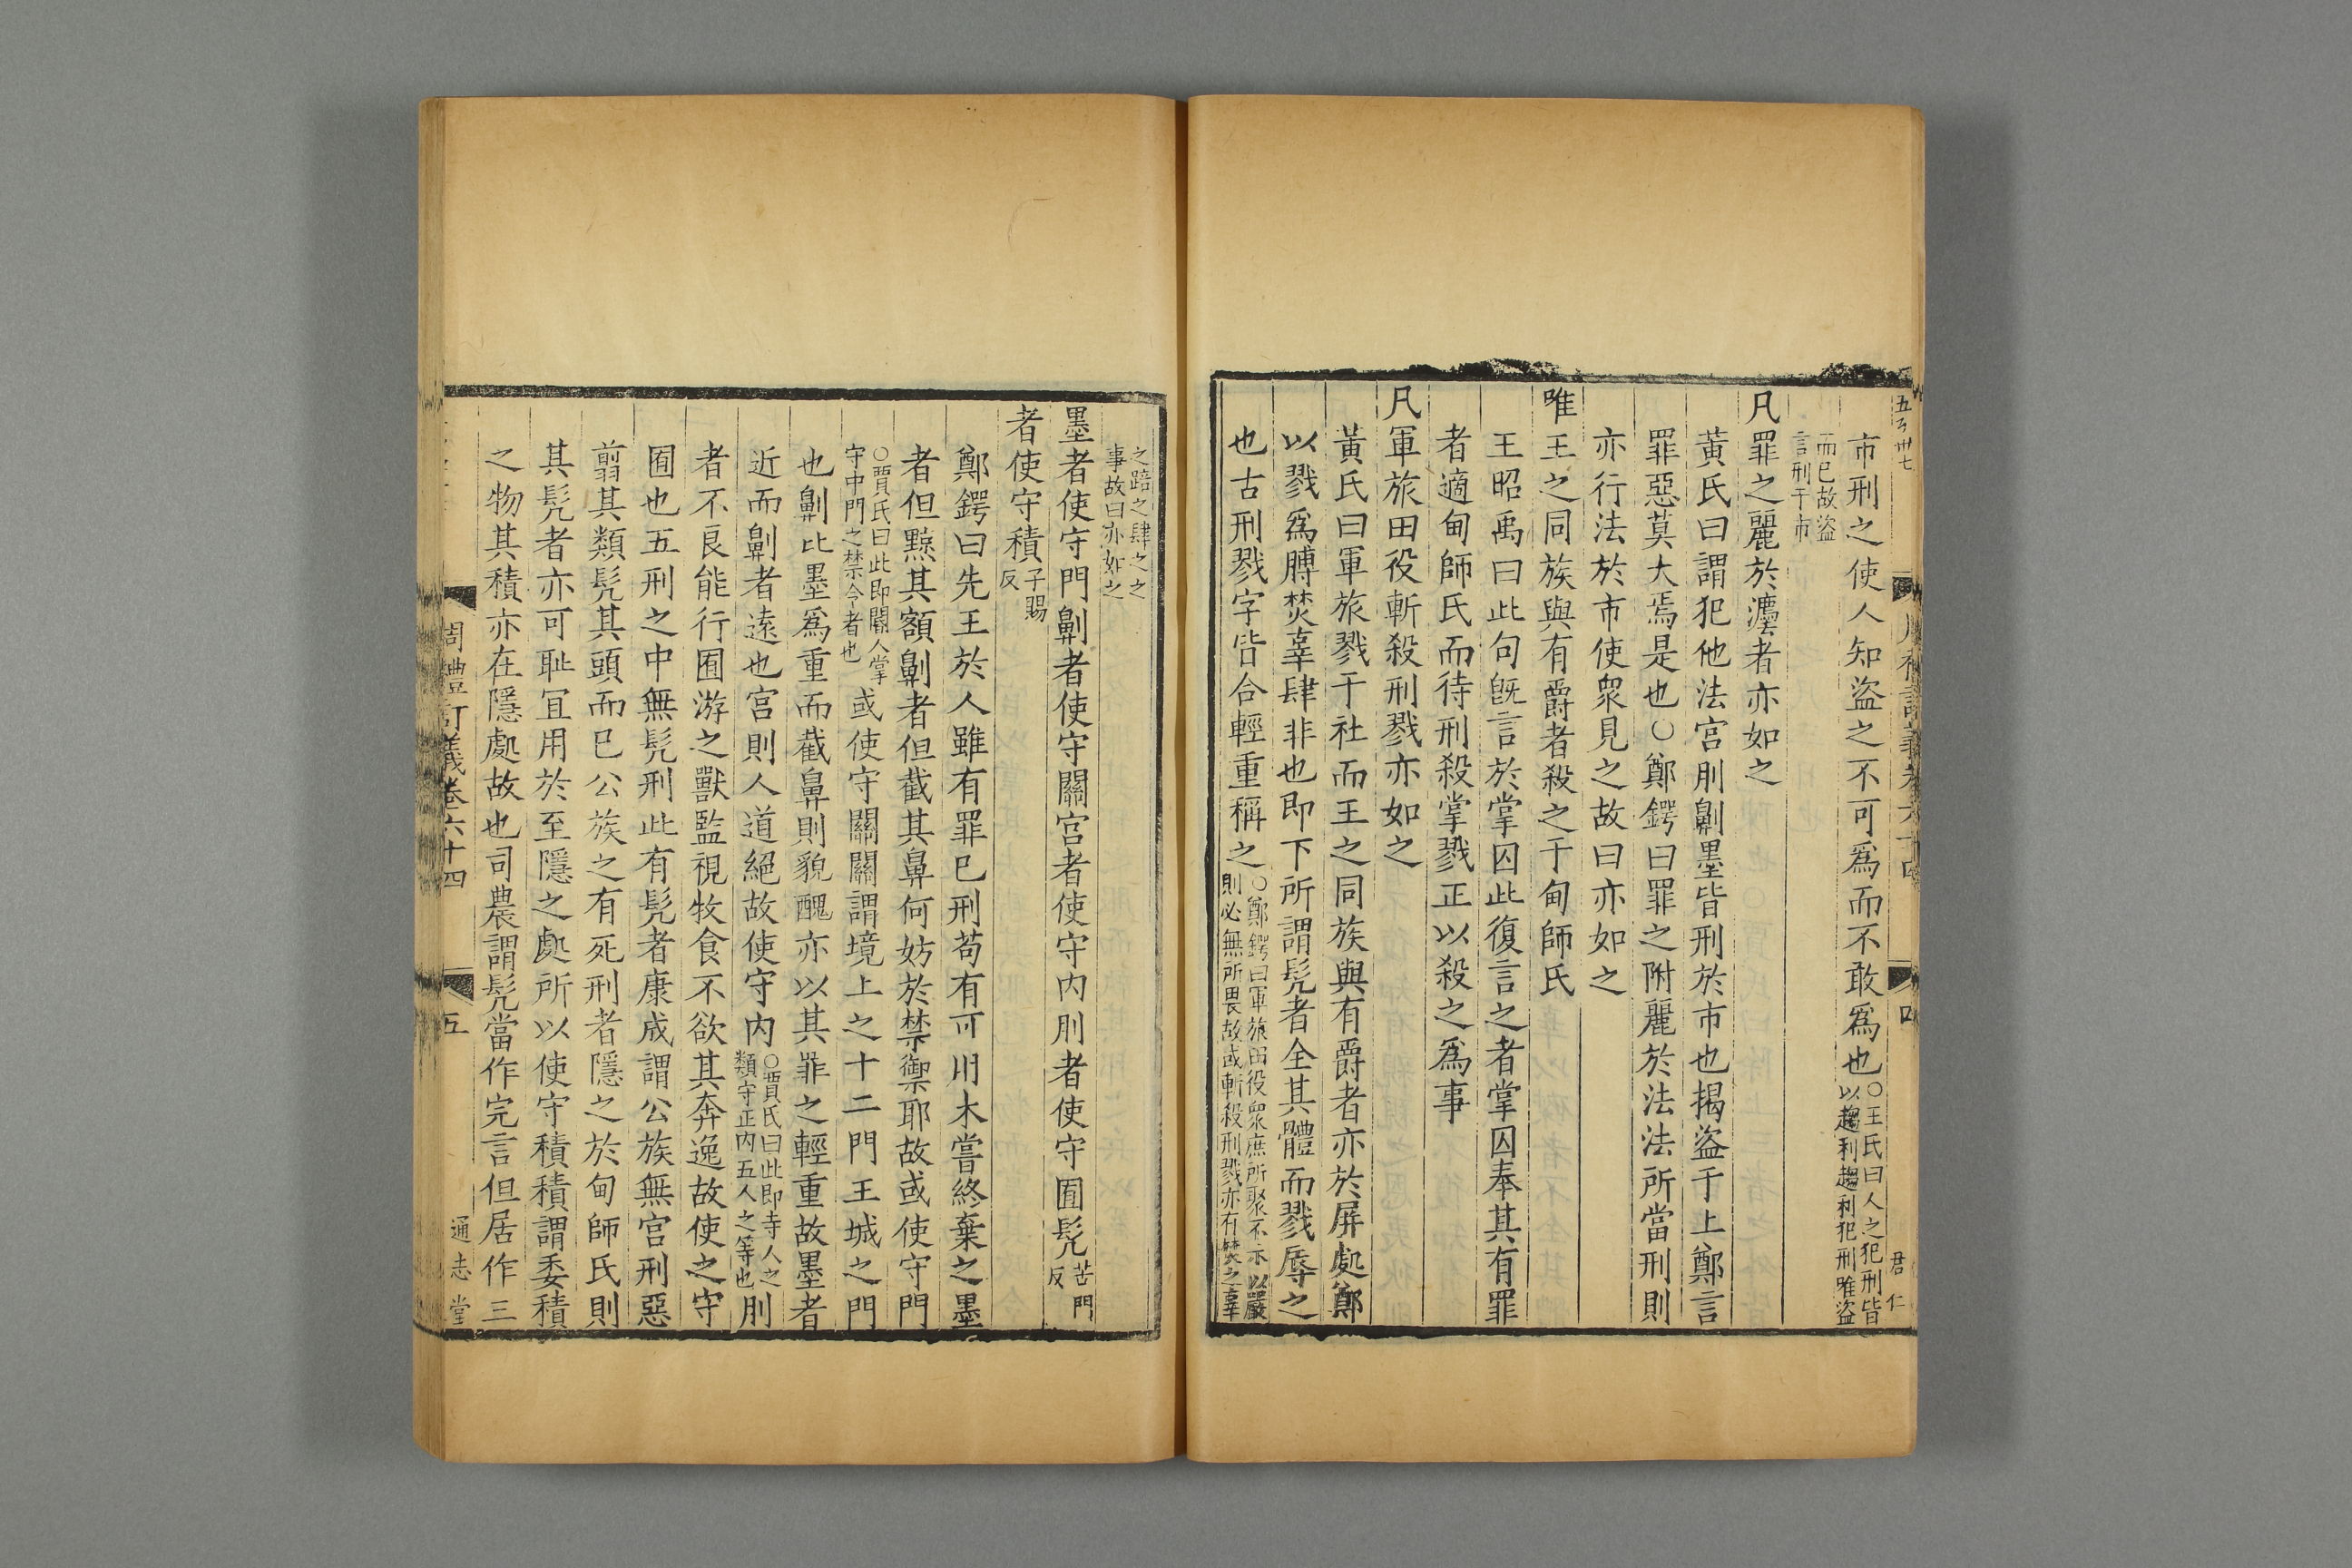 市刑之使人知盜之不可為而不敢為也○王氏曰人之犯刑皆以趨利趨利犯刑唯盜
而已故盜言刑于市
凡罪之麗於灋者亦如之
黃氏曰謂犯他法宮刖劓墨皆刑於市也揭盜于上鄭言
罪惡莫大焉是也○鄭鍔曰罪之附麗於法法所當刑則
亦行法於市使眾見之故曰亦如之
唯王之同族與有爵者殺之于甸師氏
王昭禹曰此句旣言於掌囚此復言之者掌囚奉其有罪
者適甸師氏而待刑殺掌戮正以殺之為事
凡軍旅田役斬殺刑戮亦如之
黃氏曰軍旅戮于社而王之同族與有爵者亦於屏處鄭
以戮為膊焚辜肆非也即下所謂髡者全其體而戮辱之
也古刑戮字皆合輕重稱之○鄭鍔曰軍旅田役眾庶所聚不示以嚴則必無所畏故或斬殺刑戮亦有焚之辜
四
君仁
之踣之肆之之事故曰亦如之
墨者使守門劓者使守關宮者使守内刖者使守囿髡苦門反
者使守積子賜反
鄭鍔曰先王於人雖有罪已刑苟有可用未嘗終棄之墨
者但黥其額劓者但截其鼻何妨於禁禦耶故或使守門
○賈氏曰此即閽人掌守中門之禁令者也或使守關關謂境上之十二門王城之門
也劓比墨為重而截鼻則貌醜亦以其罪之輕重故墨者
近而劓者遠也宮則人道絕故使守内○賈氏曰此即寺人之類守正内五人之等也刖
者不良能行囿游之獸監視牧食不欲其奔逸故使之守
囿也五刑之中無髡刑此有髡者康成謂公族無宮刑惡
翦其類髡其頭而已公族之有死刑者隱之於甸師氏則
其髡者亦可恥宜用於至隱之處所以使守積積謂委積
之物其積亦在隱處故也司農謂髡當作完言但居作三
周禮訂義卷六十四
五
通志堂